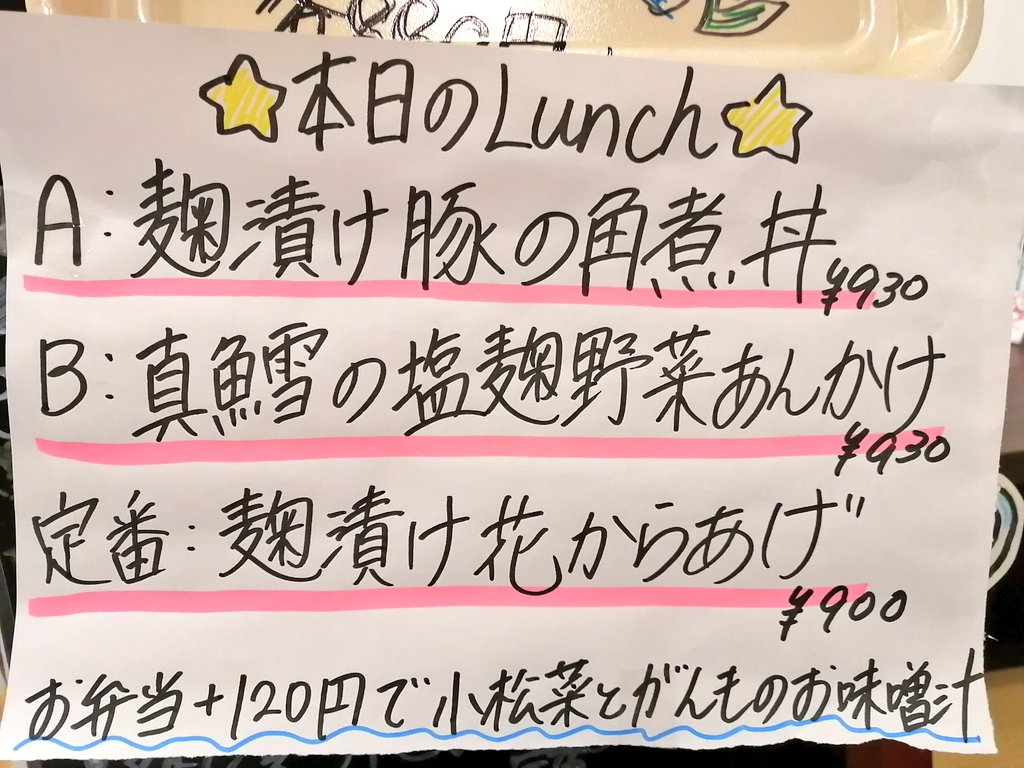 本日のLunch
A:麹漬け豚の角煮丼
¥930
B:真鱈の塩麹野菜あんかけ
¥930
定番:麹漬け花からあげ
¥900
お弁当+120円で小松菜とがんものお味噌汁